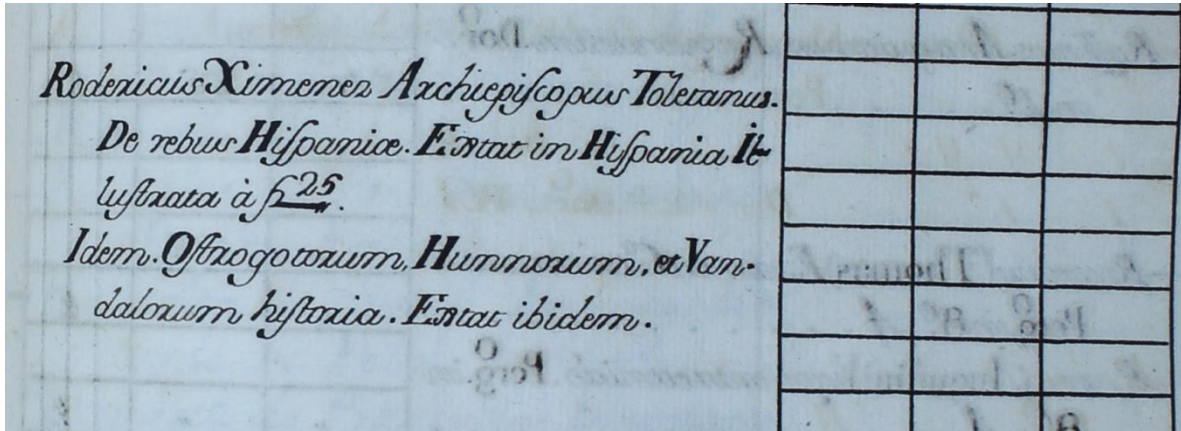 Rodericus Ximenez Archiepiscopus Toletanus.
De rebus Hispaniæ. Extat in Hispania Il-
lustrata à f. 25.
Idem. Ostrogotorum, Hunnorum, et Van-
dalorum historia. Extat ibidem.